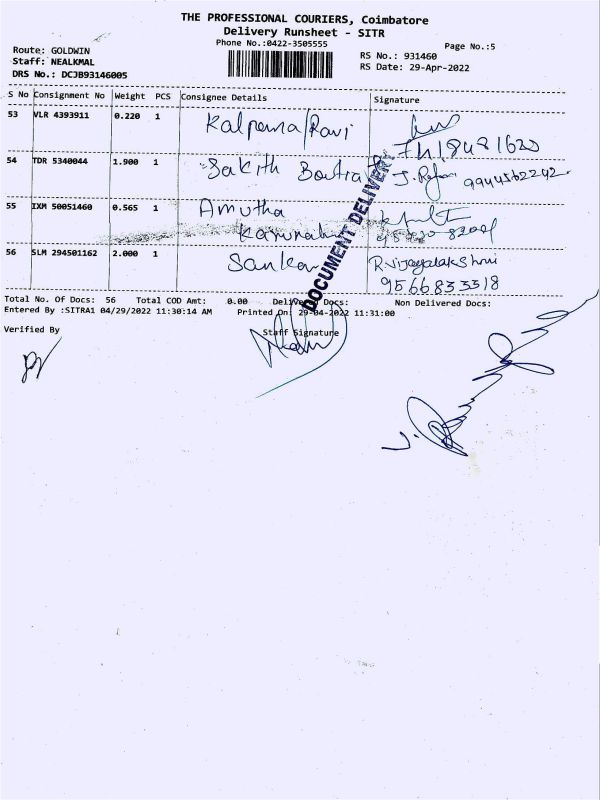 THE PROFESSIONAL COURIERS, Coimbatore
Delivery Runsheet - SITR
Phone No.:0422-3505555
Page No.:5
Route: GOLDWIN
Staff: NEALKMAL
DRS No.: DCJB93146005
RS No.: 931460
RS Date: 29-Apr-2022
S No Consignment No Weight PCS Consignee Details Signature
53 VLR 4393911 0.220 1 Kalpana/Ravi
54 TDR 5340044 1.900 1 Sakith 9944562242
55 IXM 50051460 0.565 1 Amutha
56 SLM 294501162 2.000 1 Sankar R.Vijayalakshmi
9566833318
DOCUMENT DELIVERY
Total No. Of Docs: 56 Total COD Amt: 0.00 Delivery Docs: Non Delivered Docs:
Entered By :SITRA1 04/29/2022 11:30:14 AM Printed On: 29-04-2022 11:31:00
Verified By Staff Signature